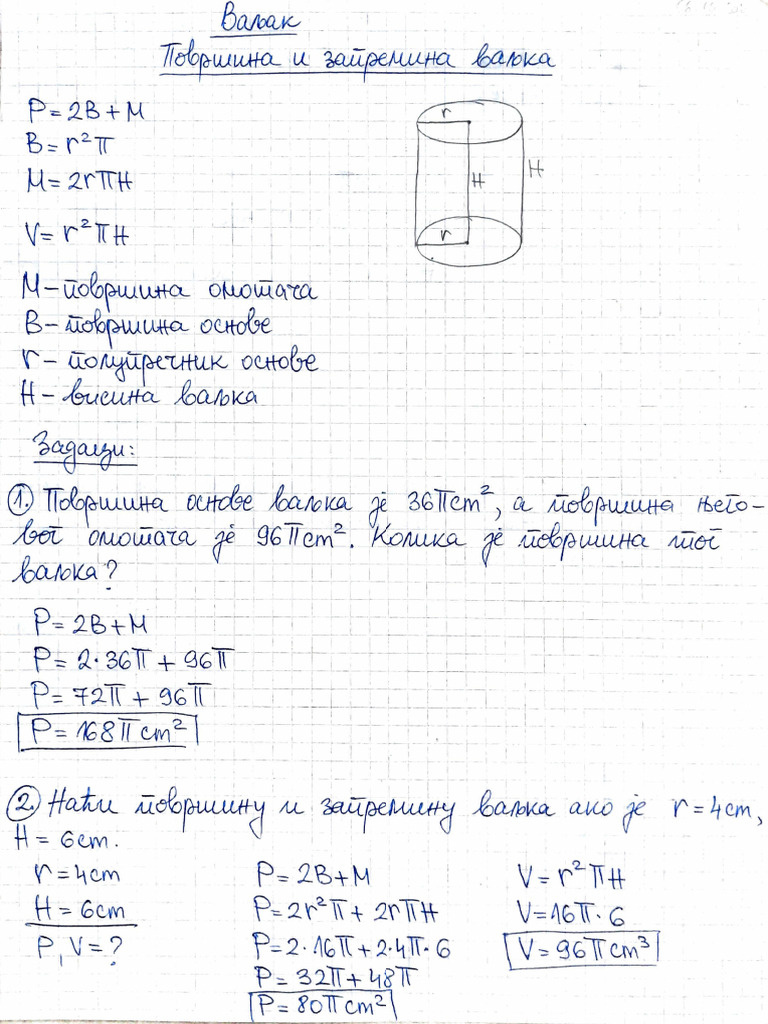 Ваљак
Површина и запремина ваљка
P = 2B + M
B = r²π
M = 2rπH
V = r²πH
r
H
H
r
M – површина омотача
B – површина основе
r – полупречник основе
H – висина ваљка
Задаци:
1. Површина основе ваљка је 36π cm², а површина њего-
вог омотача је 96π cm². Колика је површина тог
ваљка?
P = 2B + M
P = 2·36π + 96π
P = 72π + 96π
P = 168π cm²
2. Наћи површину и запремину ваљка ако је r = 4cm,
H = 6cm.
r = 4cm
H = 6cm
P, V = ?
P = 2B + M
P = 2r²π + 2rπH
P = 2·16π + 2·4π·6
P = 32π + 48π
P = 80π cm²
V = r²πH
V = 16π·6
V = 96π cm³